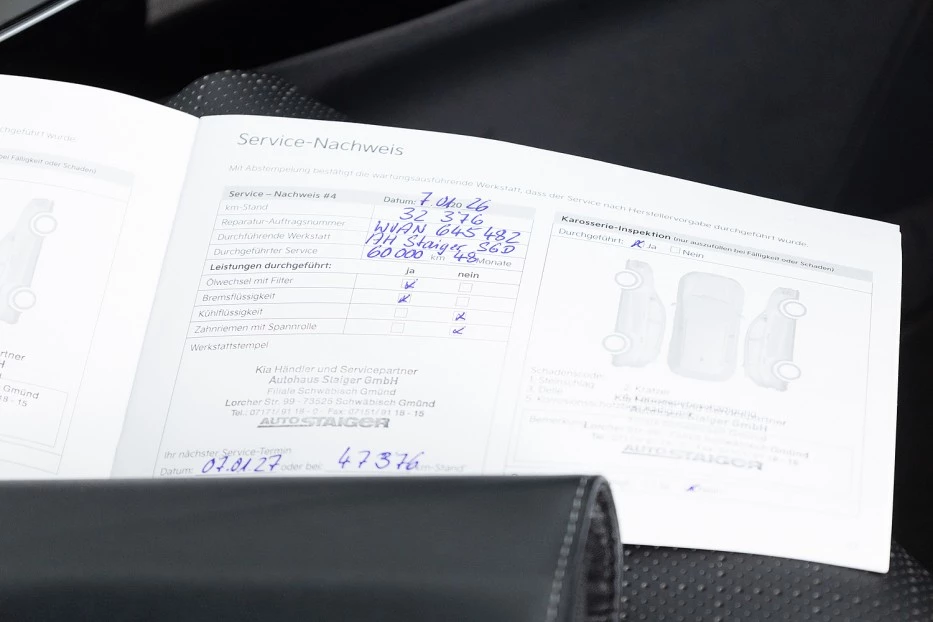 chgeführt wurde.
bei Fälligkeit oder Schäden)
Service-Nachweis
Mit Abstempelung bestätigt die wartungsausführende Werkstatt, dass der Service nach Herstellervorgabe durchgeführt wurde.
Service – Nachweis #4 Datum: 7.01.2026
km-Stand 32 376
Reparatur-Auftragsnummer WVAN 645 482
Durchführende Werkstatt AH Staiger SGD
Durchgeführter Service 60 000 km 48 Monate
Leistungen durchgeführt: ja nein
Ölwechsel mit Filter
Bremsflüssigkeit
Kühlflüssigkeit
Zahnriemen mit Spannrolle
Werkstattstempel
Kia Händler und Servicepartner
Autohaus Staiger GmbH
Filiale Schwäbisch Gmünd
Lorcher Str. 99 - 73525 Schwäbisch Gmünd
Tel.: 07171/ 91 18 - 0 - Fax: 07151/ 91 18 - 15
AUTOSTAIGER
Ihr nächster Service-Termin
Datum: 07.01.27 oder bei: 47376 km-Stand
Karosserie-Inspektion (nur auszufüllen bei Fälligkeit oder Schäden)
Durchgeführt: Ja Nein
1. Steinschlag 2. Kratzer
3. Delle
AUTOSTAIGER
Gmünd
18 - 15